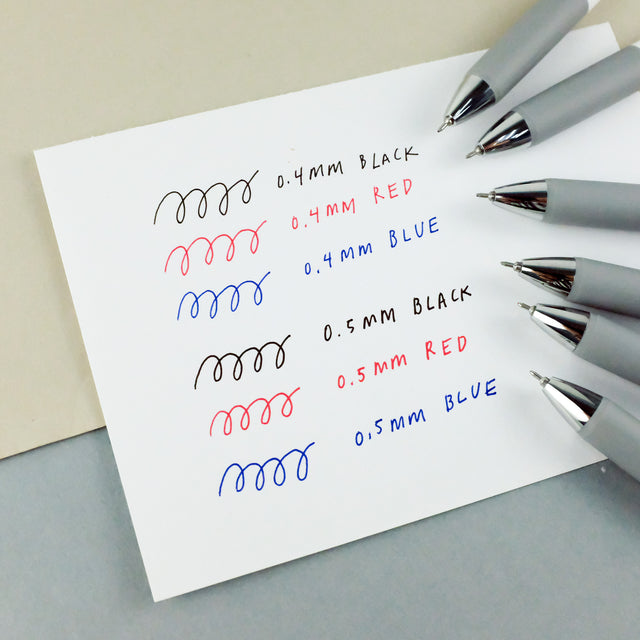 0.4MM BLACK
0.4MM RED
0.4MM BLUE
0.5MM BLACK
0.5MM RED
0.5MM BLUE